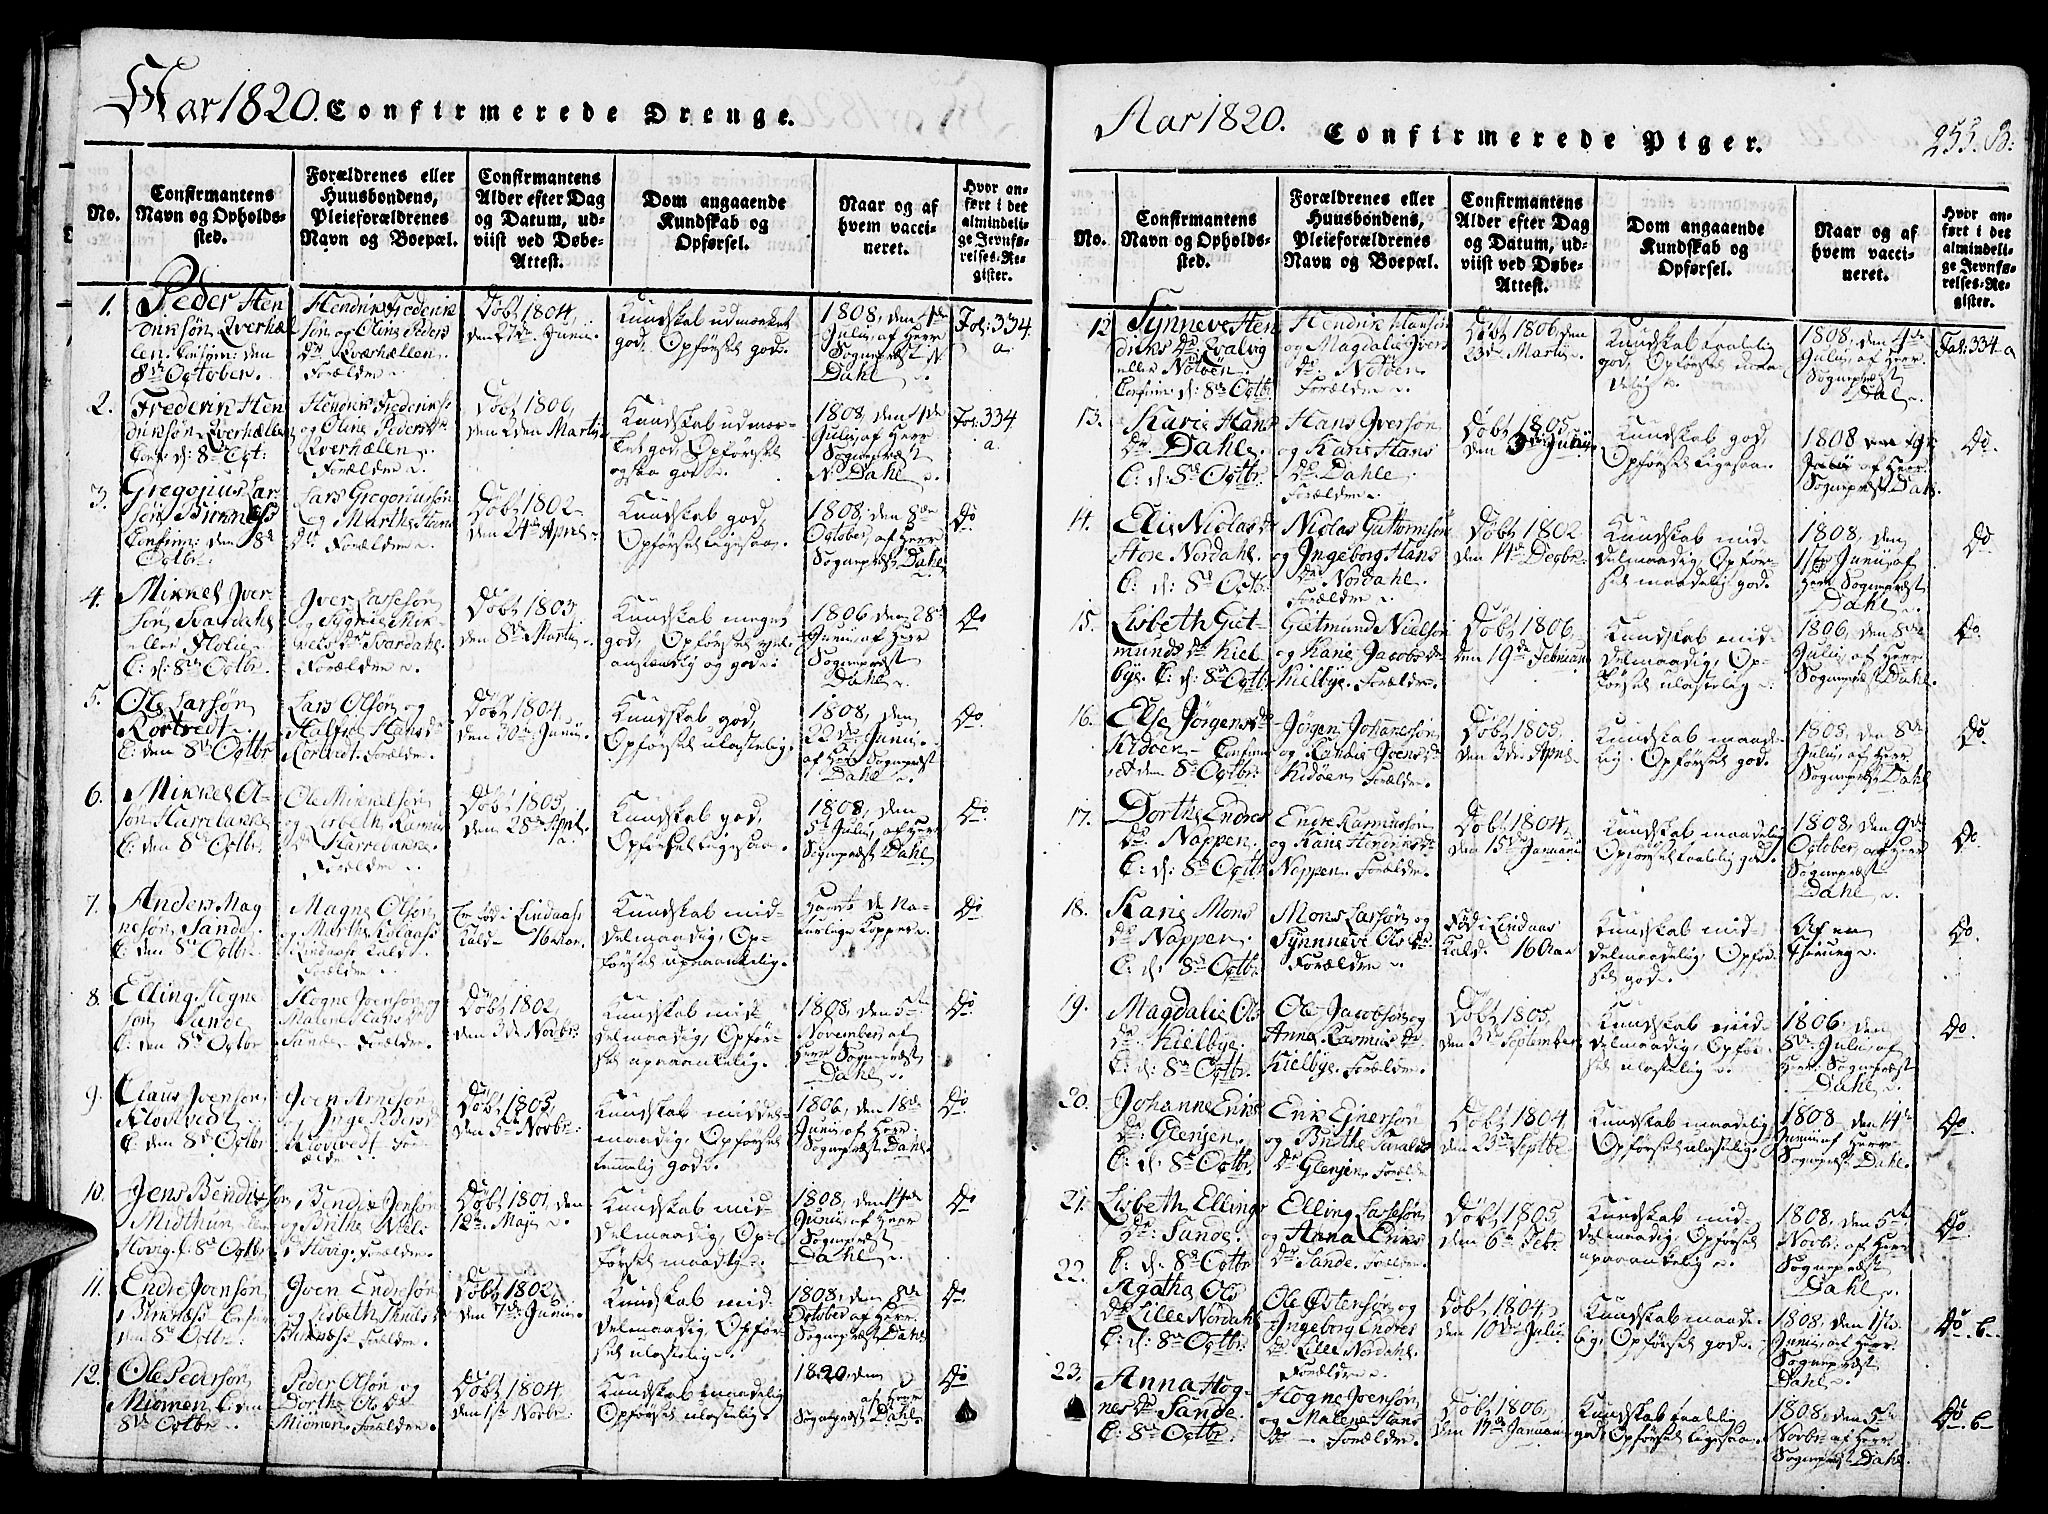 Aar 1820. Confirmerede Drenge.
No.
Confirmantens
Navn og Opholds-
sted.
Forældrenes eller
Huusbondens,
Pleieforældrenes
Navn og Boepæl.
Confirmantens
Alder efter Dag
og Datum, ud-
viist ved Døbe-
Attest.
Dom angaaende
Kundskab og
Opførsel.
Naar og af
hvem vacci-
neret.
Hvor an-
ført i det
almindeli-
ge Jevnfø-
relses-Re-
gister.
1.
Peder Hen
driksøn Qverhæl
len. Confirm: den
8de October.
Hendrik Frederik
søn og Oline Peders
dr. Qværhællen.
Forældre
Døbt 1804,
den 27de Junii.
Kundskab udmærket
god, Opførsel god.
1808, den 4de
Julii, af Herr
Sognepræst N
Dahl
Fol: 334
a.
2.
Frederik Hen
driksøn Qverhællen
Conf: d: 8de Oct:
Hendrik Frederiks
og Oline Pedersdr
Qverhællen
Forældre
Døbt 1806,
den 2den Martii
Kundskab udmær-
ket god, Opførsel
ogsaa god.
1808, den 4de
Julii, af Herr
Sognepræst
N. Dahl
Fol: 334
a
3.
Gregorius Lar
søn Birknæss
Confirm: den 8de
Octbr.
Lars Gregoriussøn
og Marthe Hans
dr. Forældre
Døbt 1802
den 24de April
Kundskab god,
Opførsel ligesaa.
1808, den 8de
October, af Herr
Sognepræst Dahl
Do
4.
Mikkel Iver
søn Svardahl
eller Flolie
C: d: 8de Octbr.
Iver Lassesøn
og Sygnie Mik-
kelsdr Svardahl.
Forældre
Døbt 1803.
den 8de Martii
Kundskab meget
god, Opførsel vel-
anstændig og god:
1806 den 28de
Junii, af Herr
Sognepræst
Dahl
Do
5.
Ole Larsøn
Rortvedt
C: den 8de Octbr
Lars Olsøn og
Halfrie Hansdr
Rortvedt. Forældre.
Døbt 1804
den 30de Junii
Kundskab god,
Opførsel ulastelig.
1808, den
22de Junii
af Herr Sognepræst
Dahl
Do
6.
Mikkel Ol-
søn Harrebakke
C: den 8de Octbr.
Ole Mikkelsøn
og Lisbeth Rasmus
dr. Harrebakke.
Forældre
Døbt 1805,
den 28de April.
Kundskab god,
Opførsel ligesaa.
1808, den
5te Julii, af Herr
Sognepræst Dahl
Do
7.
Anders Mag
nesøn Sande
C: den 8de Octbr.
Magne Olsøn
og Marthe
i Lindaas Kald
Forældre
Er fød i Lindaas
Kald 16 Aar.
Kundskab mid-
delmaadig, Op-
førsel upaaankelig.
havt de Na-
turlige Kopper
Do
8.
Elling Hogne
søn Sande
C: den 8de Octbr
Hogne Joensøn og
Malene Hansdr
Sande Forældre.
Døbt 1802
den 3de Novbr.
Kundskab mid-
delmaadig, Opfør-
sel upaaankelig.
1808, den 5te
November, af
Herr Sognepræst
Dahl
Do
9.
Claus Joensøn
Klovtvedt
C: den 8de Octbr.
Joen Arnesøn
og Inge Pedersdr
Klovtvedt For-
ældre
Døbt 1805,
den 5te Novbr.
Kundskab middel-
maadig, Opførsel
temmelig god.
1806, den 18de
Junii, af Herr
Sognepræst Dahl.
Do
10.
Jens Bendixsøn
Midthun eller
Hovig C. 8de Octbr
Bendix Jensøn
og Brithe Niels
dr Hovig. Forældre
Døbt 1801, den
12te Maj
Kundskab mid-
delmaadig, Op-
førsel maadelig.
1808, den 14de
Junii, af Herr
Sognepræst
Dahl
Do
11.
Endre Joensøn
Birknæss Confirm
den 8de Octbr.
Joen Endresøn
og Lisbeth
Birknæss Forældre
Døbt 1802
den 7de Junii
Kundskab mid-
delmaadig, Opfør-
sel ulastelig.
1808, den 8de
October af Herr
Sognepræst Dahl
Do
12.
Ole Pedersøn
Miømen C: den
8de Octbr
Peder Olsøn og
Dorthe Olsdr
Miømen. Forældre
Døbt 1804
den 1ste Novbr.
Kundskab maadelig
Opførsel ulastelig.
1820, den
af Herr
Sognepræst Dahl
Do
Aar 1820. Confirmerede Piger. 255. B:
No.
Confirmantens
Navn og Opholds-
sted.
Forældrenes eller
Huusbondens,
Pleieforældrenes
Navn og Boepæl.
Confirmantens
Alder efter Dag
og Datum, ud-
viist ved Døbe-
Attest.
Dom angaaende
Kundskab og
Opførsel.
Naar og af
hvem vacci-
neret.
Hvor an-
ført i det
almindeli-
ge Jevnfø-
relses-Re-
gister.
12
Synneve Hen
driks dr. Qvalvig
eller Notøen.
Confirm: d: 8de Octbr
Hendrik Hansøn
og Magdalie Ivers
dr. Notøen.
Forældre
Døbt 1806, den
23de Martii
Kundskab taalelig
god, Opførsel maa-
delig
1808, den 4de
Julii, af Herr
Sognepræst
Dal
Fol: 334 a
13.
Karie Hans
dr. Dahle.
C: d: 8de Octbr.
Hans Iversøn
og Karie Hans
dr. Dahle
Forældre
Døbt 1805,
den 3de Julii
Kundskab god,
Opførsel ligesaa.
1808 den
Julii af Herr
Sognepræst Dahl.
Do.
14.
Elie Niclas dr
Store Nordahl.
C: d: 8de Octbr.
Niclas Guttormsøn
og Ingeborg Hans
dr. Nordahl.
Forældre
Døbt 1802
den 14de Decbr.
Kundskab mid-
delmaadig, Opfør-
sel maadelig god.
1808, den
1ste Junii, af
Herr Sognepræst
Dahl
Do.
15.
Lisbeth Giet-
munds dr. Kiel
bye. C: d: 8de Octbr
Gietmund Nielsøn
og Karie Jacobs dr.
Kielbye. Forældre.
Døbt 1806,
den 19de Februarii
Kundskab mid-
delmaadig, Op-
førsel ulastelig
1806, den 8de
Julii, af Herr
Sognepræst Dahl.
Do.
16.
Else Jørgens dr
Kidøen Confirme
ret den 8de Octbr.
Jørgen Johannesøn
og Joens dr
Kidøen Forældre.
Døbt 1805.
den 3de April
Kundskab maade-
lig. Opførsel god.
1808, den 8de
Julii, af Herr
Sognepræst Dahl
Do.
17.
Dorthe Endres
dr. Nappen.
C: d: 8de Octbr.
Endre Rasmussøn
og Karie Henriks dr
Nappen. Forældre.
Døbt 1804,
den 15de Januarii
Kundskab maadelig
Opførsel taalelig god.
1808, den 9de
October, af Herr
Sognepræst
Dahl
Do.
18.
Karie Mons
dr. Nappen.
C: d: 8de Octbr
Mons Larsøn og
Synneve Ols dr.
Forældre
Fød i Lindaas
Kald. 16 Aar
Kundskab mid-
delmaadelig, Opfør
sel god.
Af en
Do.
19.
Magdalie Ols
dr. Kielbye.
C: d: 8de Octbr.
Ole Jacobsøn og
Anne Rasmus dr.
Kielbye. Forældre.
Døbt 1805,
den 3de September
Kundskab mid-
delmaadig, Opfør-
sel ulastelig
1806, den
8de Julii, af
Herr Sognepræst
Dahl
Do.
20.
Johanne Eriks
dr. Glenjen.
C: d: 8de Octbr.
Erik Ejnersøn
og Brithe
dr. Glenjen. Forældre
Døbt 1804
den 23de Septbr.
Kundskab maadelig
Opførsel ulastelig.
1808, den 14de
Junii, af Herr
Sognepræst Dahl.
Do.
21.
Lisbeth Ellings
dr. Sande.
C: d: 8de Octbr
Elling Larsøn
og Anna Eriks
dr. Sande. Forældre.
Døbt 1805
den 6te Febr.
Kundskab mid-
delmaadig. Opførsel
upaaankelig
1808, den 5te
Novbr. af Herr
Sognepræst
Dahl
Do.
22.
Agatha Ols
dr. Lille Nordahl
C: d: 8de Octbr:
Ole Østensøn og
Ingeborg Endres
dr. Lille Nordahl.
Forældre
Døbt 1804
den 10de Julii
Kundskab maade-
lig, Opførsel god.
1808, den 1ste
Junii, af Herr
Sognepræst
Dahl
Do. b
23.
Anna Hog-
nes dr. Sande.
C: 8de Octbr.
Hogne Joensøn
og Malene Hans
dr. Forældre.
Døbt 1806,
den 17de Januarii
Kundskab taalelig
god, Opførsel ligesaa.
1808, den 5te
Novbr. af Herr
Sognepræst Dahl
Do. b